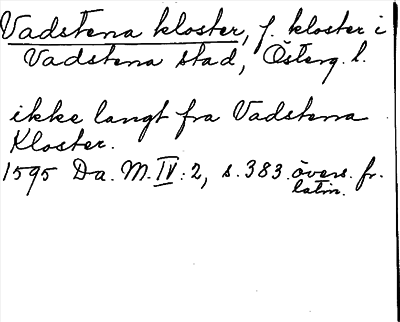 Vadstena kloster, f. kloster i
Vadstena stad, Österg. l.
ikke langt fra Vadstena
Kloster.
1595 Da. M. IV: 2, s. 383. övers. fr.
latin.